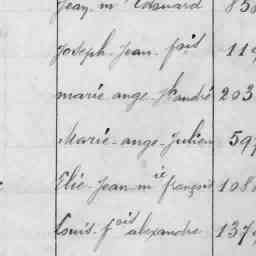 Jean mie Edouard 85
Joseph Jean fois 11
marie ange fse andré 203
Marie-ange-Julien 597
Elie-Jean mie françois 108
Louis-fois alexandre 137